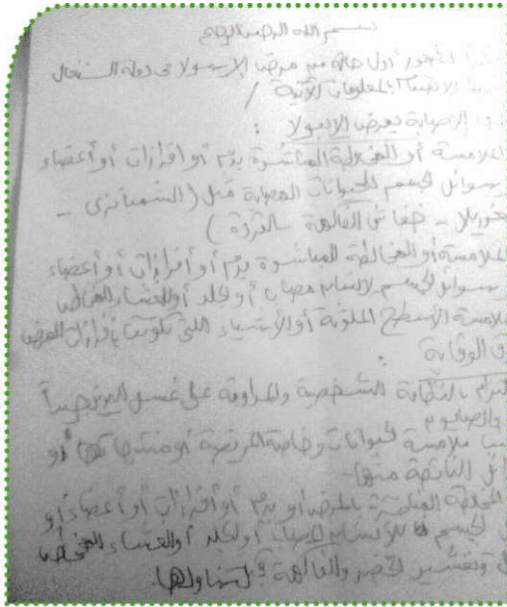 بسم الله الرحمن الرحيم
لظهور أول حالة من مرض الإيبولا فى دولة السنغال
المعلومات الآتية /
الإصابة بمرض الإيبولا :
الملامسة أو المخالطة المباشرة بدم أو افرازات أو أعضاء
سوائل لجسم الحيوانات المصابة مثل ( الشمبانزى -
- خفافيش الفاكهة - القردة )
الملامسة أو المخالطة المباشرة بدم أو أفرازات أو أعضاء
سوائل الجسم لإنسان مصاب أو الجلد أو الغشاء المخاطى
ملامسة الأسطح الملوثة أو الأشياء التى تلوثت بأفرازات المريض
الوقاية :
بالنظافة الشخصية والمداومة على غسل اليدين جيداً
والصابون
ملامسة الحيوانات وخاصة المريضة أو منتجاتها أو
الناتجة منها .
بالمرض أو بدم أو أفرازات أو أعضاء أو
الجسم للأنسان المصاب أو الجلد أو الغشاء المخاطى
وتقشير الخضر والفاكهة قبل تناولها .